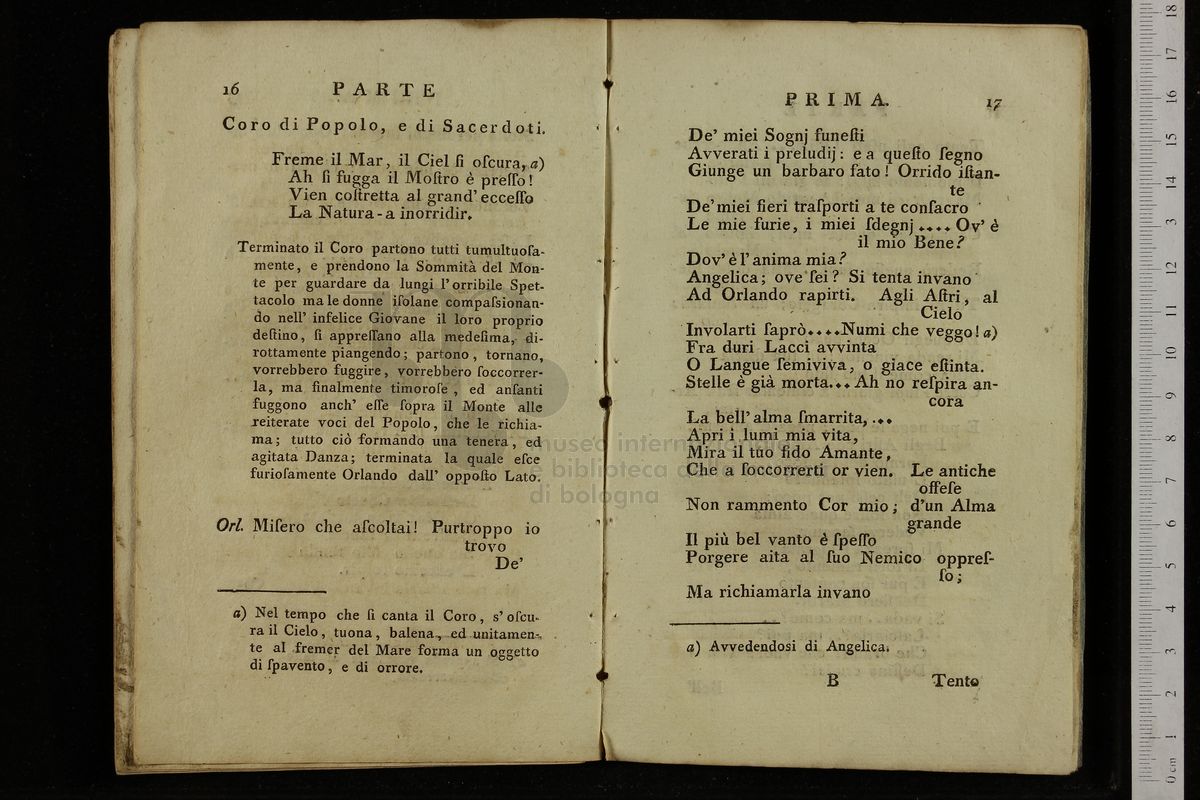 16 PARTE
Coro di Popolo, e di Sacerdoti.
Freme il Mar, il Ciel ſi oſcura, a)
Ah ſi fugga il Moſtro è preſſo!
Vien coſtretta al grand' ecceſſo
La Natura - a inorridir.
Terminato il Coro partono tutti tumultuoſa-
mente, e prendono la Sommità del Mon-
te per guardare da lungi l'orribile Spet-
tacolo ma le donne iſolane compaſsionan-
do nell' infelice Giovane il loro proprio
deſtino, ſi appreſſano alla medeſima, di-
rottamente piangendo; partono, tornano,
vorrebbero fuggire, vorrebbero ſoccorrer-
la, ma finalmente timoroſe, ed anſanti
fuggono anch' eſſe ſopra il Monte alle
reiterate voci del Popolo, che le richia-
ma; tutto ciò formando una tenera, ed
agitata Danza; terminata la quale eſce
furioſamente Orlando dall' oppoſto Lato.
Orl. Miſero che aſcoltai! Purtroppo io
trovo
De'
a) Nel tempo che ſi canta il Coro, s' oſcu-
ra il Cielo, tuona, balena, ed unitamen-
te al fremer del Mare forma un oggetto
di ſpavento, e di orrore.
PRIMA. 17
De' miei Sognj funeſti
Avverati i preludij: e a queſto ſegno
Giunge un barbaro fato! Orrido iſtan-
te
De' miei fieri traſporti a te conſacro
Le mie furie, i miei ſdegnj .... Ov' è
il mio Bene?
Dov' è l' anima mia?
Angelica; ove ſei? Si tenta invano
Ad Orlando rapirti. Agli Aſtri, al
Cielo
Involarti ſaprò....Numi che veggo! a)
Fra duri Lacci avvinta
O Langue ſemiviva, o giace eſtinta.
Stelle è già morta... Ah no reſpira an-
cora
La bell' alma ſmarrita, ...
Apri i lumi mia vita,
Mira il tuo fido Amante,
Che a ſoccorrerti or vien. Le antiche
offeſe
Non rammento Cor mio; d'un Alma
grande
Il più bel vanto è ſpeſſo
Porgere aita al ſuo Nemico oppreſ-
ſo;
Ma richiamarla invano
a) Avvedendosi di Angelica.
B Tento
museo internazionale
e biblioteca
di bologna
0 cm 1 2 3 4 5 6 7 8 9 10 11 12 13 14 15 16 17 18